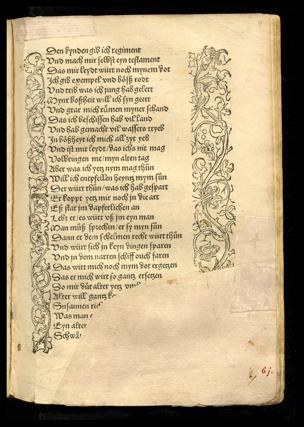 Den kynden gib ich regiment
Und mach mir selbst eyn testament
Das mir leydt würt noch mynem dot
Ich gib exempel vnd böß rodt
Und trib was ich jung hab gelert
Mynr boßheit will ich syn geert
Und gtar mich rümen myner schand
Das ich beschissen hab vil land
Und hab gemacht vil wassers tryeb
In bößheyt ich mich all zyt yeb
Und ist mir leydt / das ichs nit mag
Volbringen me / myn alten tag
Aber was ich yetz nym mag thůn
Will ich entpfellen heyntz mym sůn
Der würt thůn / was ich hab gespart
Er koppt yetz mir noch in die art
Es stat jm dapferlichen an
Lebt er / es würt vß jm eyn man
Man můß sprechen / er sy myn sůn
Dann er dem schelmen recht würt thůn
Und würt sich in keyn dingen sparen
Und jn dem narren schiff ouch faren
Das wirt mich noch mym dot ergetzen
Das er mich wirt so gantz ersetzen
So mit důt alter yetz vm
Alter will gantz k
Susannen ric
Was man
Eyn alter
Schwä
61.